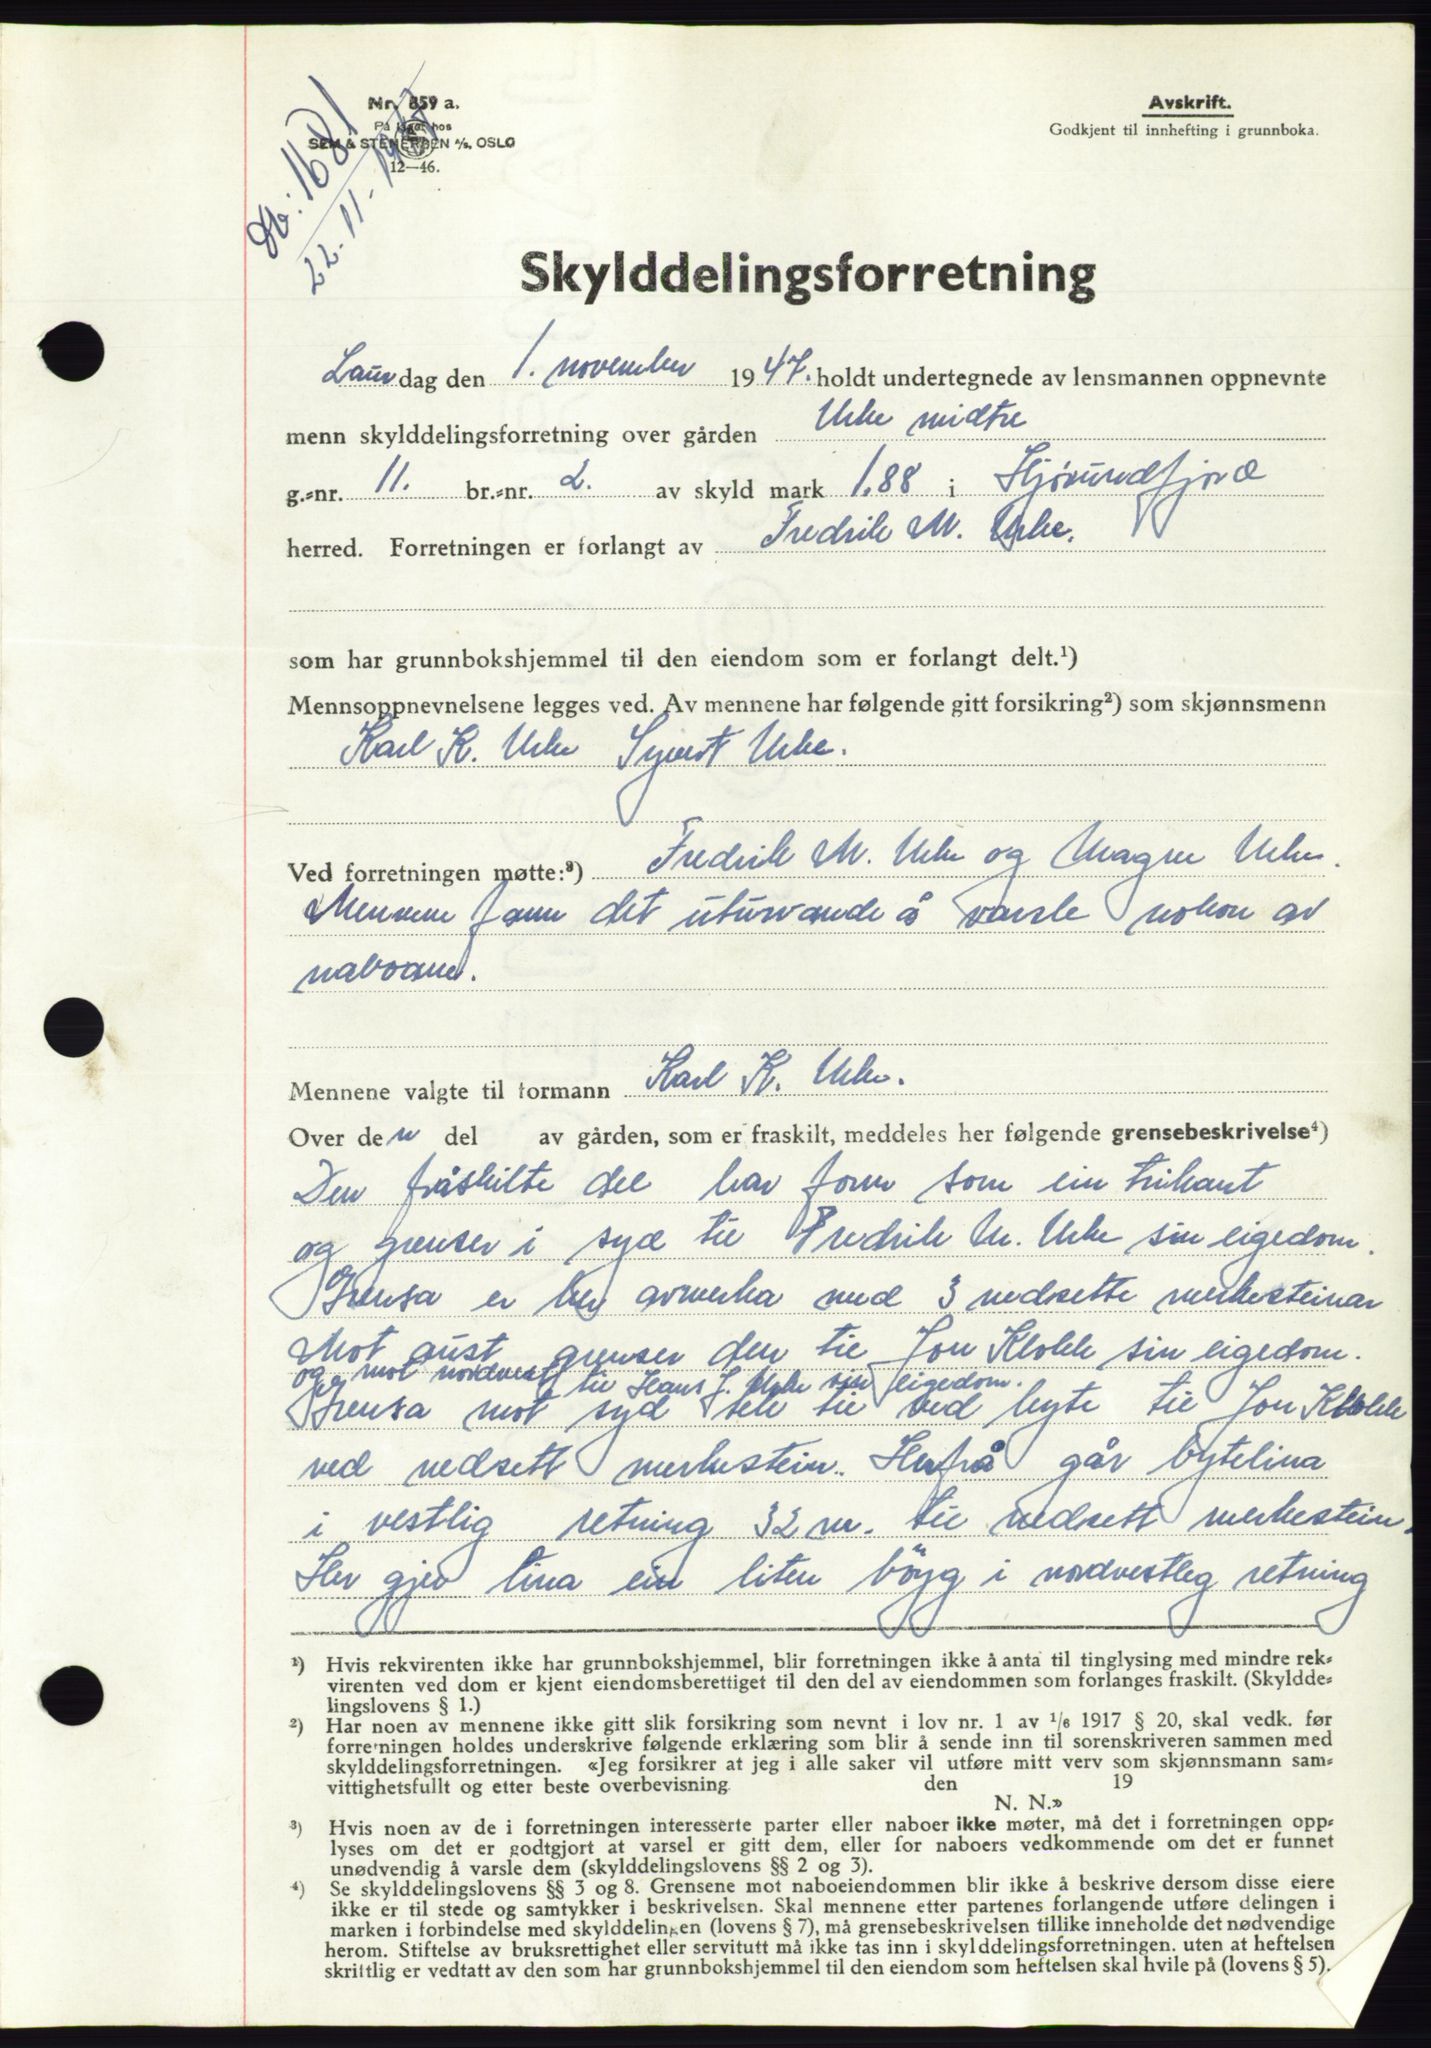 Nr. 859 a.
På lager hos
SEM & STENERSEN A/S, OSLO
12—46.
Nr. 1681
22-11-1947
Avskrift.
Godkjent til innhefting i grunnboka.
Skylddelingsforretning
Laurdag den 1. november 1947. holdt undertegnede av lensmannen oppnevnte
menn skylddelingsforretning over gården Urke midtre
g.=nr. 11. br.=nr. 2. av skyld mark 1.88 i Hjørundfjord
herred. Forretningen er forlangt av Fredrik M. Urke.
som har grunnbokshjemmel til den eiendom som er forlangt delt.¹)
Mennsoppnevnelsene legges ved. Av mennene har følgende gitt forsikring²) som skjønnsmenn
Karl K. Urke Syvert Urke.
Ved forretningen møtte:³) Fredrik M. Urke og Magne Urke.
Mennene fann det uturvande å varsle nokon av
naboane.
Mennene valgte til formann Karl K. Urke.
Over den del av gården, som er fraskilt, meddeles her følgende grensebeskrivelse⁴)
Den fråskilte del har form som ein trikant
og grenser i syd til Fredrik M. Urke sin eigedom.
Grensa er her avmerka med 3 nedsette merkesteinar
Mot aust grenser den til Jon Klokk sin eigedom.
og mot nordvest til Hans J. Urke sin eigedom.
Grensa mot syd tek til ved byte til Jon Klokk
ved nedsett merkestein. Herfrå går bytelina
i vestlig retning 32 m. til nedsett merkestein.
Her gjer lina ein liten böyg i nordvestleg retning
¹) Hvis rekvirenten ikke har grunnbokshjemmel, blir forretningen ikke å anta til tinglysing med mindre rek=
virenten ved dom er kjent eiendomsberettiget til den del av eiendommen som forlanges fraskilt. (Skyldde=
lingslovens § 1.)
²) Har noen av mennene ikke gitt slik forsikring som nevnt i lov nr. 1 av ¹/₆ 1917 § 20, skal vedk. før
forretningen holdes underskrive følgende erklæring som blir å sende inn til sorenskriveren sammen med
skylddelingsforretningen. «Jeg forsikrer at jeg i alle saker vil utføre mitt verv som skjønnsmann sam=
vittighetsfullt og etter beste overbevisning den 19
N. N.»
³) Hvis noen av de i forretningen interesserte parter eller naboer ikke møter, må det i forretningen opp=
lyses om det er godtgjort at varsel er gitt dem, eller for naboers vedkommende om det er funnet
unødvendig å varsle dem (skylddelingslovens §§ 2 og 3).
⁴) Se skylddelingslovens §§ 3 og 8. Grensene mot naboeiendommen blir ikke å beskrive dersom disse eiere
ikke er til stede og samtykker i beskrivelsen. Skal mennene etter partenes forlangende utføre delingen i
marken i forbindelse med skylddelingen (lovens § 7), må grensebeskrivelsen tillike inneholde det nødvendige
herom. Stiftelse av bruksrettighet eller servitutt må ikke tas inn i skylddelingsforretningen, uten at heftelsen
skriftlig er vedtatt av den som har grunnbokshjemmel til den eiendom som heftelsen skal hvile på (lovens § 5).